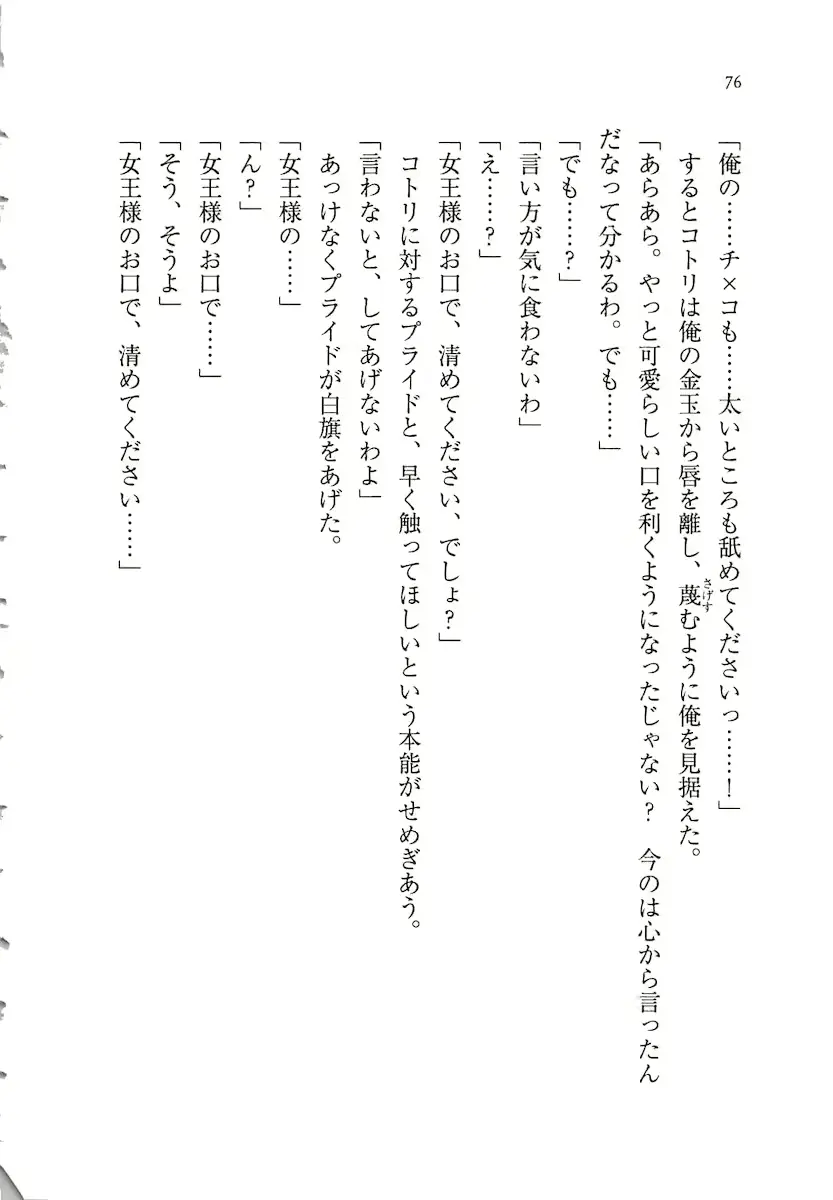 76
「俺の……チ×コも……太いところも舐めてくださいっ……！」
するとコトリは俺の金玉から唇を離し、蔑むように俺を見据えた。
さげす
「あらあら。やっと可愛らしい口を利くようになったじゃない？　今のは心から言ったん
だなって分かるわ。でも……」
「でも……？」
「言い方が気に食わないわ」
「え……？」
「女王様のお口で、清めてください、でしょ？」
コトリに対するプライドと、早く触ってほしいという本能がせめぎあう。
「言わないと、してあげないわよ」
あっけなくプライドが白旗をあげた。
「女王様の……」
「ん？」
「女王様のお口で……」
「そう、そうよ」
「女王様のお口で、清めてください……」